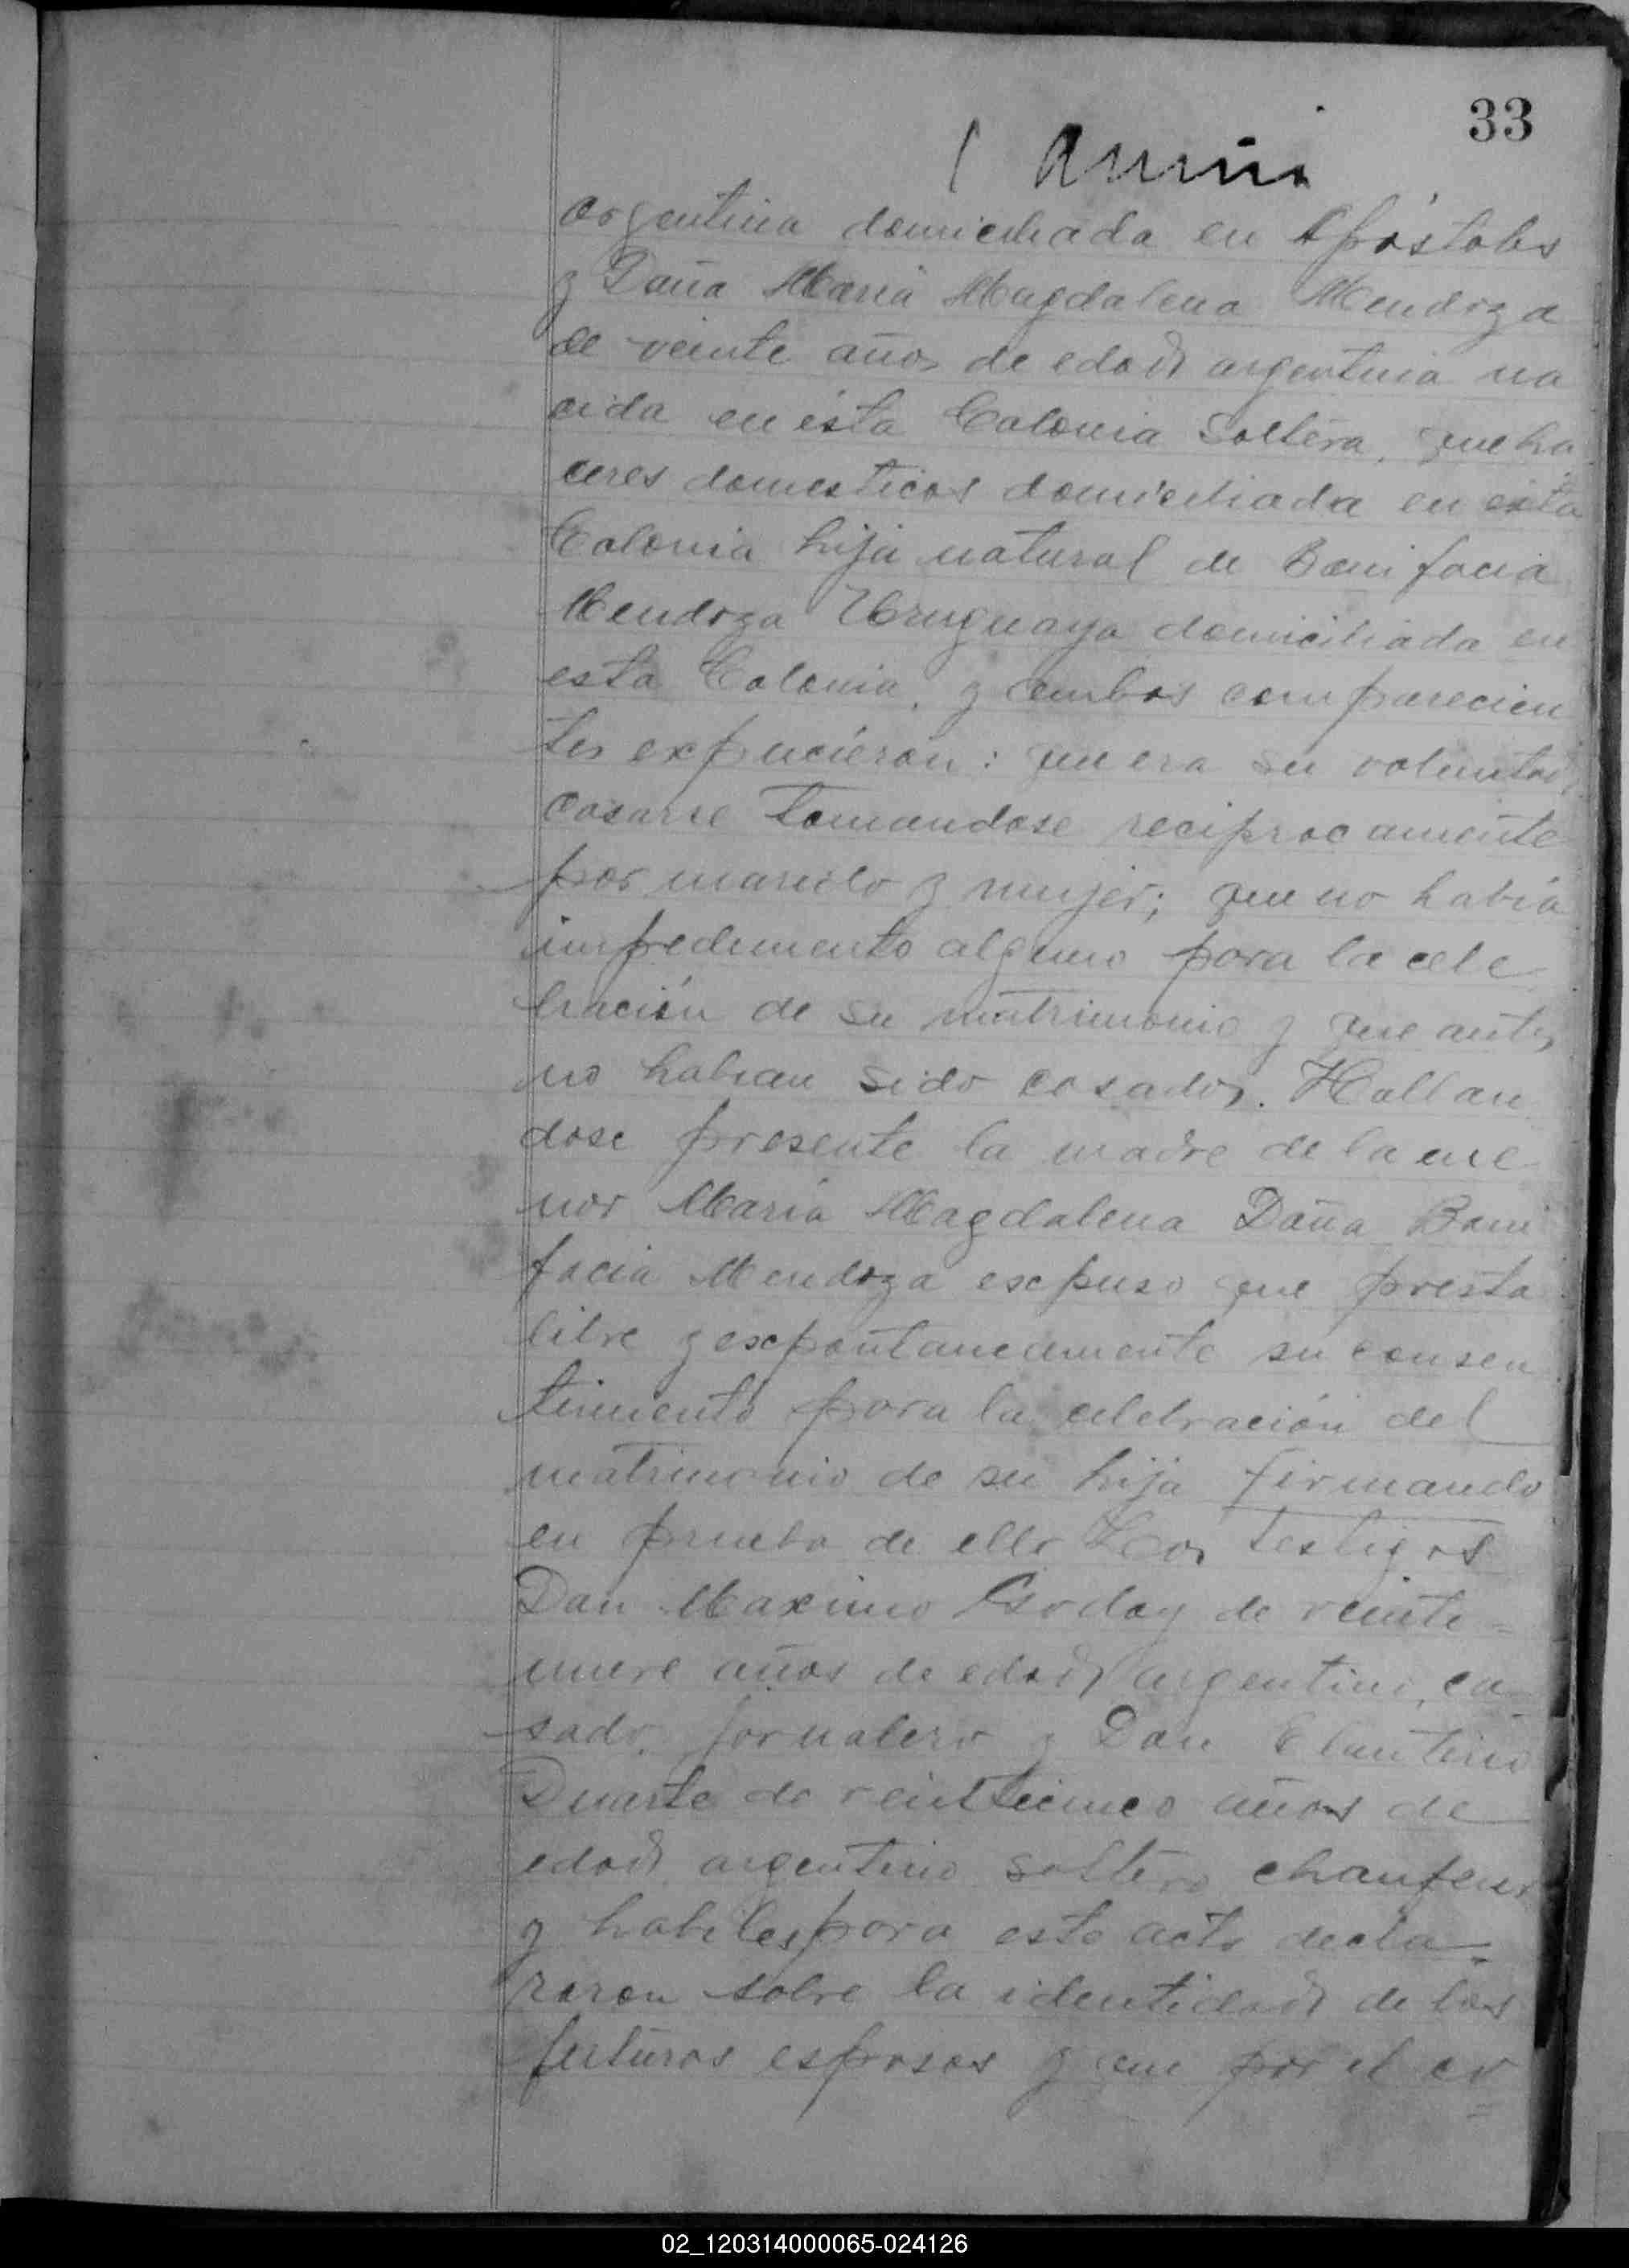 33
argentina domiciliada en Apóstoles
y Doña María Magdalena Mendoza
de veinte años de edad argentina na
cida en ésta Colonia Soltera, queha
ceres domesticos domiciliada en esta
Colonia hija natural de Bonifacia
Mendoza Uruguaya domiciliada en
esta Colonia, y ambos comparecien
tes expucieron: que era su voluntad,
casarse tomandose reciprocamente
por marido y mujer; que no había
impedimento alguno para la cele
bración de su matrimonio y que antes
no habian sido casados. Hallan
dose presente la madre de la me
nor María Magdalena Doña Boni
facia Mendoza expuso que presta
libre y expontaneamente su consen
timiento para la celebración del
matrimonio de su hija firmando
en prueba de ello Los testigos
Don Maximo Godoy de veinte =
nueve años de edad argentino, ca-
sado, jornalero y Don Elautirio
Duarte de veinticinco años de
edad argentino soltero chaufeur
y habiles para este acto decla=
raron sobre la identidad de los
futuros esposos y que por el co
=
02_120314000065-024126